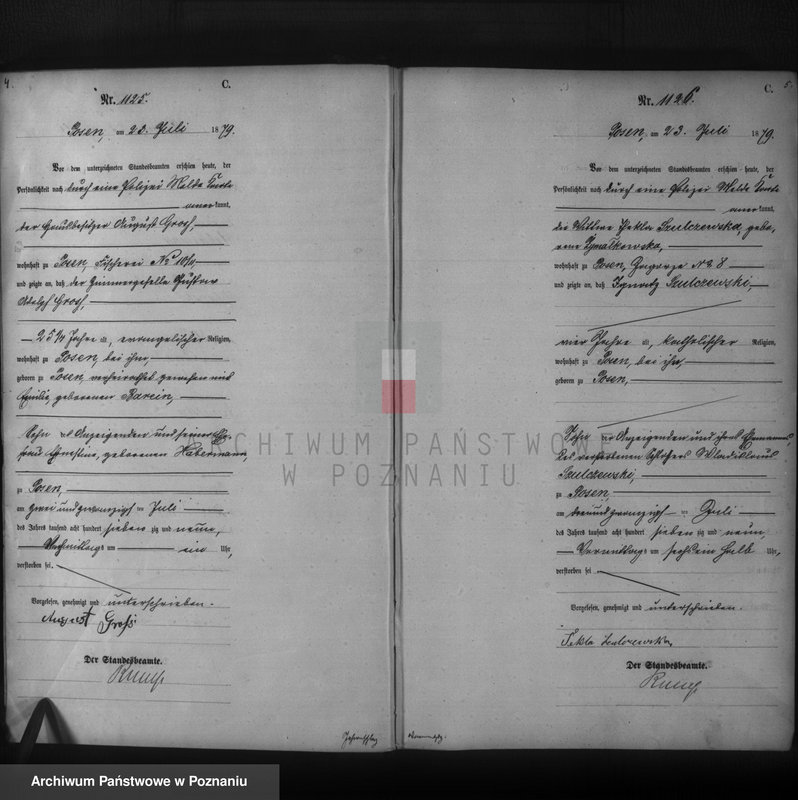 4
C.
Nr. 1125.
Posen, am 23. Juli 1879.
Vor dem unterzeichneten Standesbeamten erschien heute, der
Persönlichkeit nach durch eine Polizei Melde Karte
kannt,
der Hausbesitzer August Groß,
wohnhaft zu Posen, Fischerei No
und zeigte an, daß der Zimmergeselle Gustav
Adolph Groß,
25 Jahre alt, evangelischer Religion,
wohnhaft zu Posen, bei ihm,
geboren zu Posen, verheirathet gewesen mit
Emilie, geborenen
Sohn des Anzeigenden und seiner Ehe-
frau Ernestine, geborenen Habermann,
zu Posen,
am zwei und zwanzigsten Juli
des Jahres tausend acht hundert sieben zig und neun,
Nachmittags um ein Uhr,
verstorben sei.
Vorgelesen, genehmigt und unterschrieben.
August Groß
Der Standesbeamte.
C. 5
Nr. 1126.
Posen, am 23. Juli 1879.
Vor dem unterzeichneten Standesbeamten erschien heute, der
Persönlichkeit nach durch eine Polizei Melde Karte
kannt,
die Wittwe Thekla Szulczewska, gebo-
rene
wohnhaft zu Posen, Zagorze No 8
und zeigte an, daß Ignatz Szulczewski,
vier Jahre alt, katholischer Religion,
wohnhaft zu Posen, bei ihr,
geboren zu Posen,
Sohn der Anzeigenden und ihres Ehemannes,
des verstorbenen Schlossers Wladislaus
Szulczewski,
zu Posen,
am drei und zwanzigsten Juli
des Jahres tausend acht hundert sieben zig und neun
Vormittags um sechs ein halb Uhr,
verstorben sei.
Vorgelesen, genehmigt und unterschrieben.
Tekla
Der Standesbeamte.
ARCHIWUM PAŃSTWOWE
W POZNANIU
Archiwum Państwowe w Poznaniu